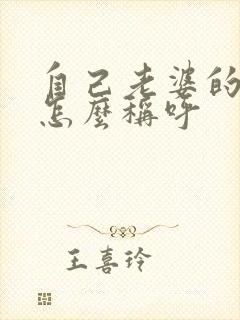 自己老婆的
怎麼稱呼
王喜玲